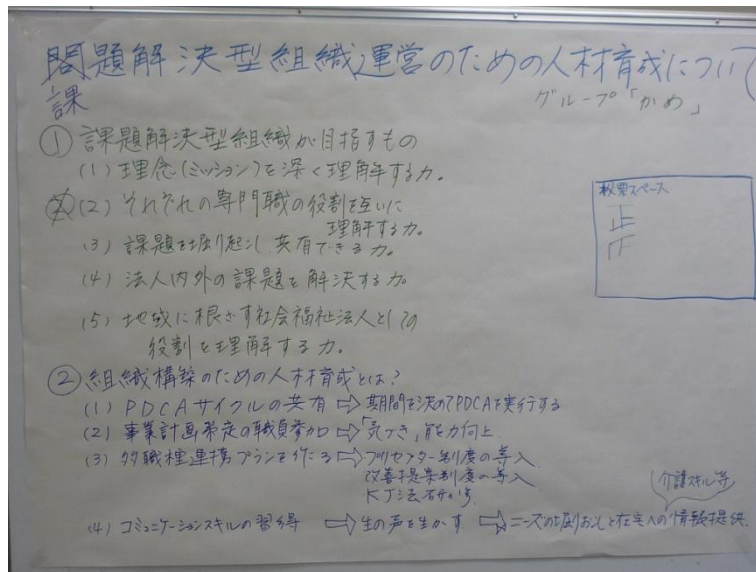 問題解決型組織運営のための人材育成について
課
グループ「かめ」
① 課題解決型組織が目指すもの
(1) 理念(ミッション)を深く理解する力。
(2) それぞれの専門職の役割を互いに
理解する力。
(3) 課題を堀り起こし、共有できる力。
(4) 法人内外の課題を解決する力。
(5) 地域に根ざす社会福祉法人としての
役割を理解する力。
投票スペース
正
② 組織構築のための人材育成とは?
(1) PDCAサイクルの共有 ⇨ 期間を決めてPDCAを実行する
(2) 事業計画策定の職員参加 ⇨ 「気づき」能力向上
(3) 多職種連携プランを作る ⇨ プリセプター制度の導入
改善提案制度の導入
KJ法研修
(介護スキル等)
(4) コミュニケーションスキルの習得 ⇨ 生の声を生かす ⇨ ニーズの堀りおこしと在宅への情報提供